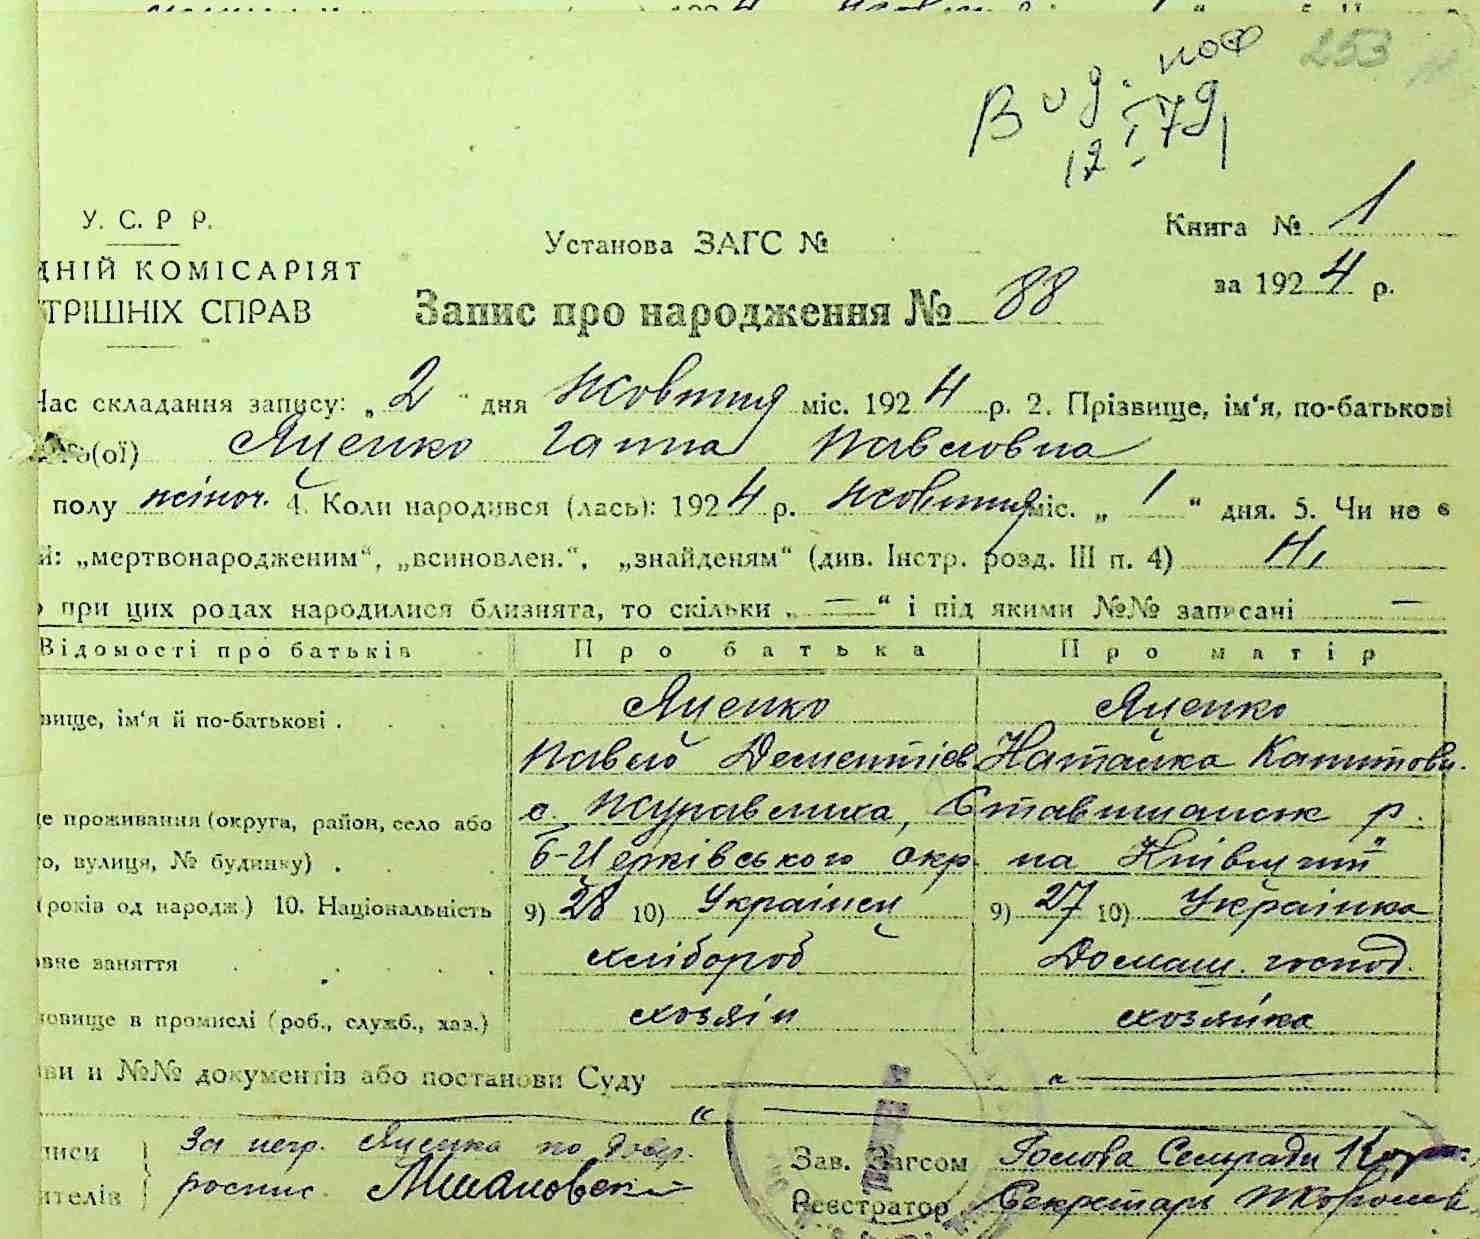 253
Вид. пов
12 I 79
У. С. Р Р.
Книга № 1
Установа ЗАГС №
ДНІЙ КОМІСАРІЯТ
за 1924 р.
ТРІШНІХ СПРАВ
Запис про народження № 88
Час складання запису: „2" дня Жовтня міс. 1924 р. 2. Прізвище, ім'я, по-батькові
го(ої) Яценко Ганна Павловна
полу жіноч. 4. Коли народився (лась): 1924 р. Жовтня міс. „1" дня. 5. Чи не є
й: „мертвонародженим", „всиновлен.", „знайденям" (див. Інстр. розд. III п. 4) Ні
при цих родах народилися близнята, то скільки „—" і під якими №№ записані —
Відомості про батьків Про батька Про матір
вище, ім'я й по-батькові . Яценко Яценко
Павло Дементієв Наталка Капитовн.
це проживання (округа, район, село або с. Журавлиха, Ставищанськ р.
о, вулиця, № будинку) . Б-Церківського окр. на Київщині
(років од народж) 10. Національність 9) 28 10) Українец 9) 27 10) Українка
овне заняття хлібороб Домаш. господ.
новище в промислі (роб., служб., хаз.) хозяін хозяйка
ви и №№ документів або постанови Суду — " —
"
писи За негр. Яценка по довір.
Зав. Загсом Голова Сельради
ителів роспис.
Реєстратор Секретарь